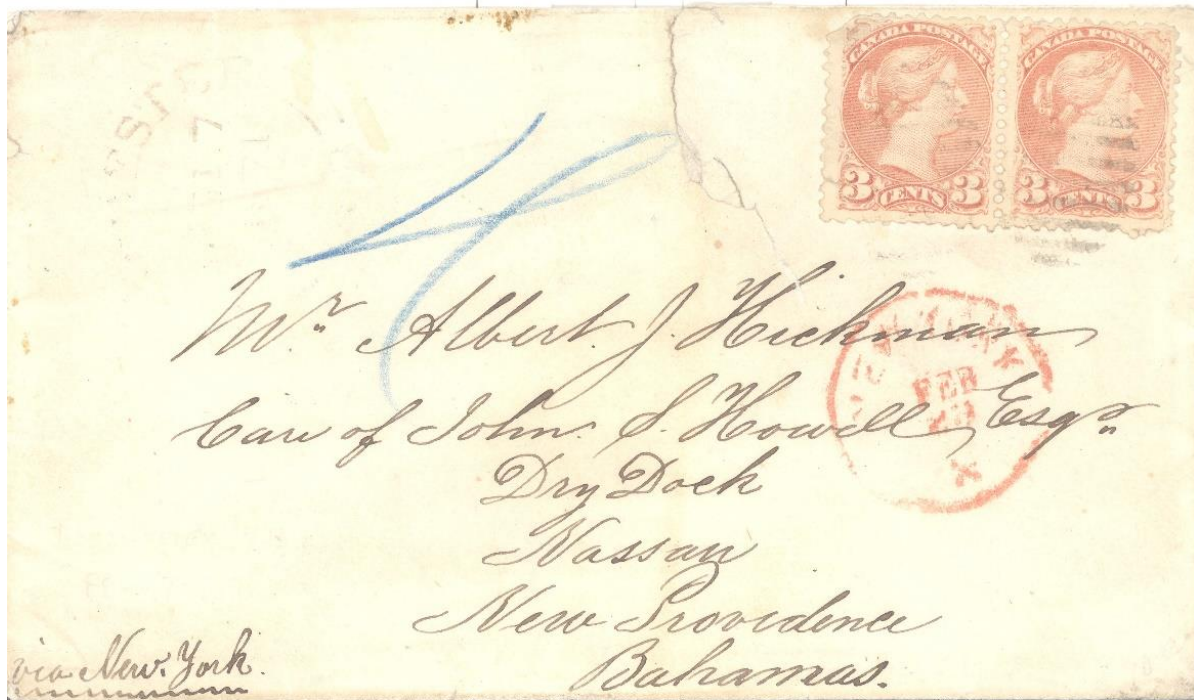 CANADA POSTAGE CANADA POSTAGE
3 CENTS 3 3 CENTS 3
Mr. Albert. J. Hickman
Care of John. S. Howell, Esqr.
Dry Dock
Nassau
New Providence
Bahamas.
via New. York.
NEW YORK
FEB
X
4